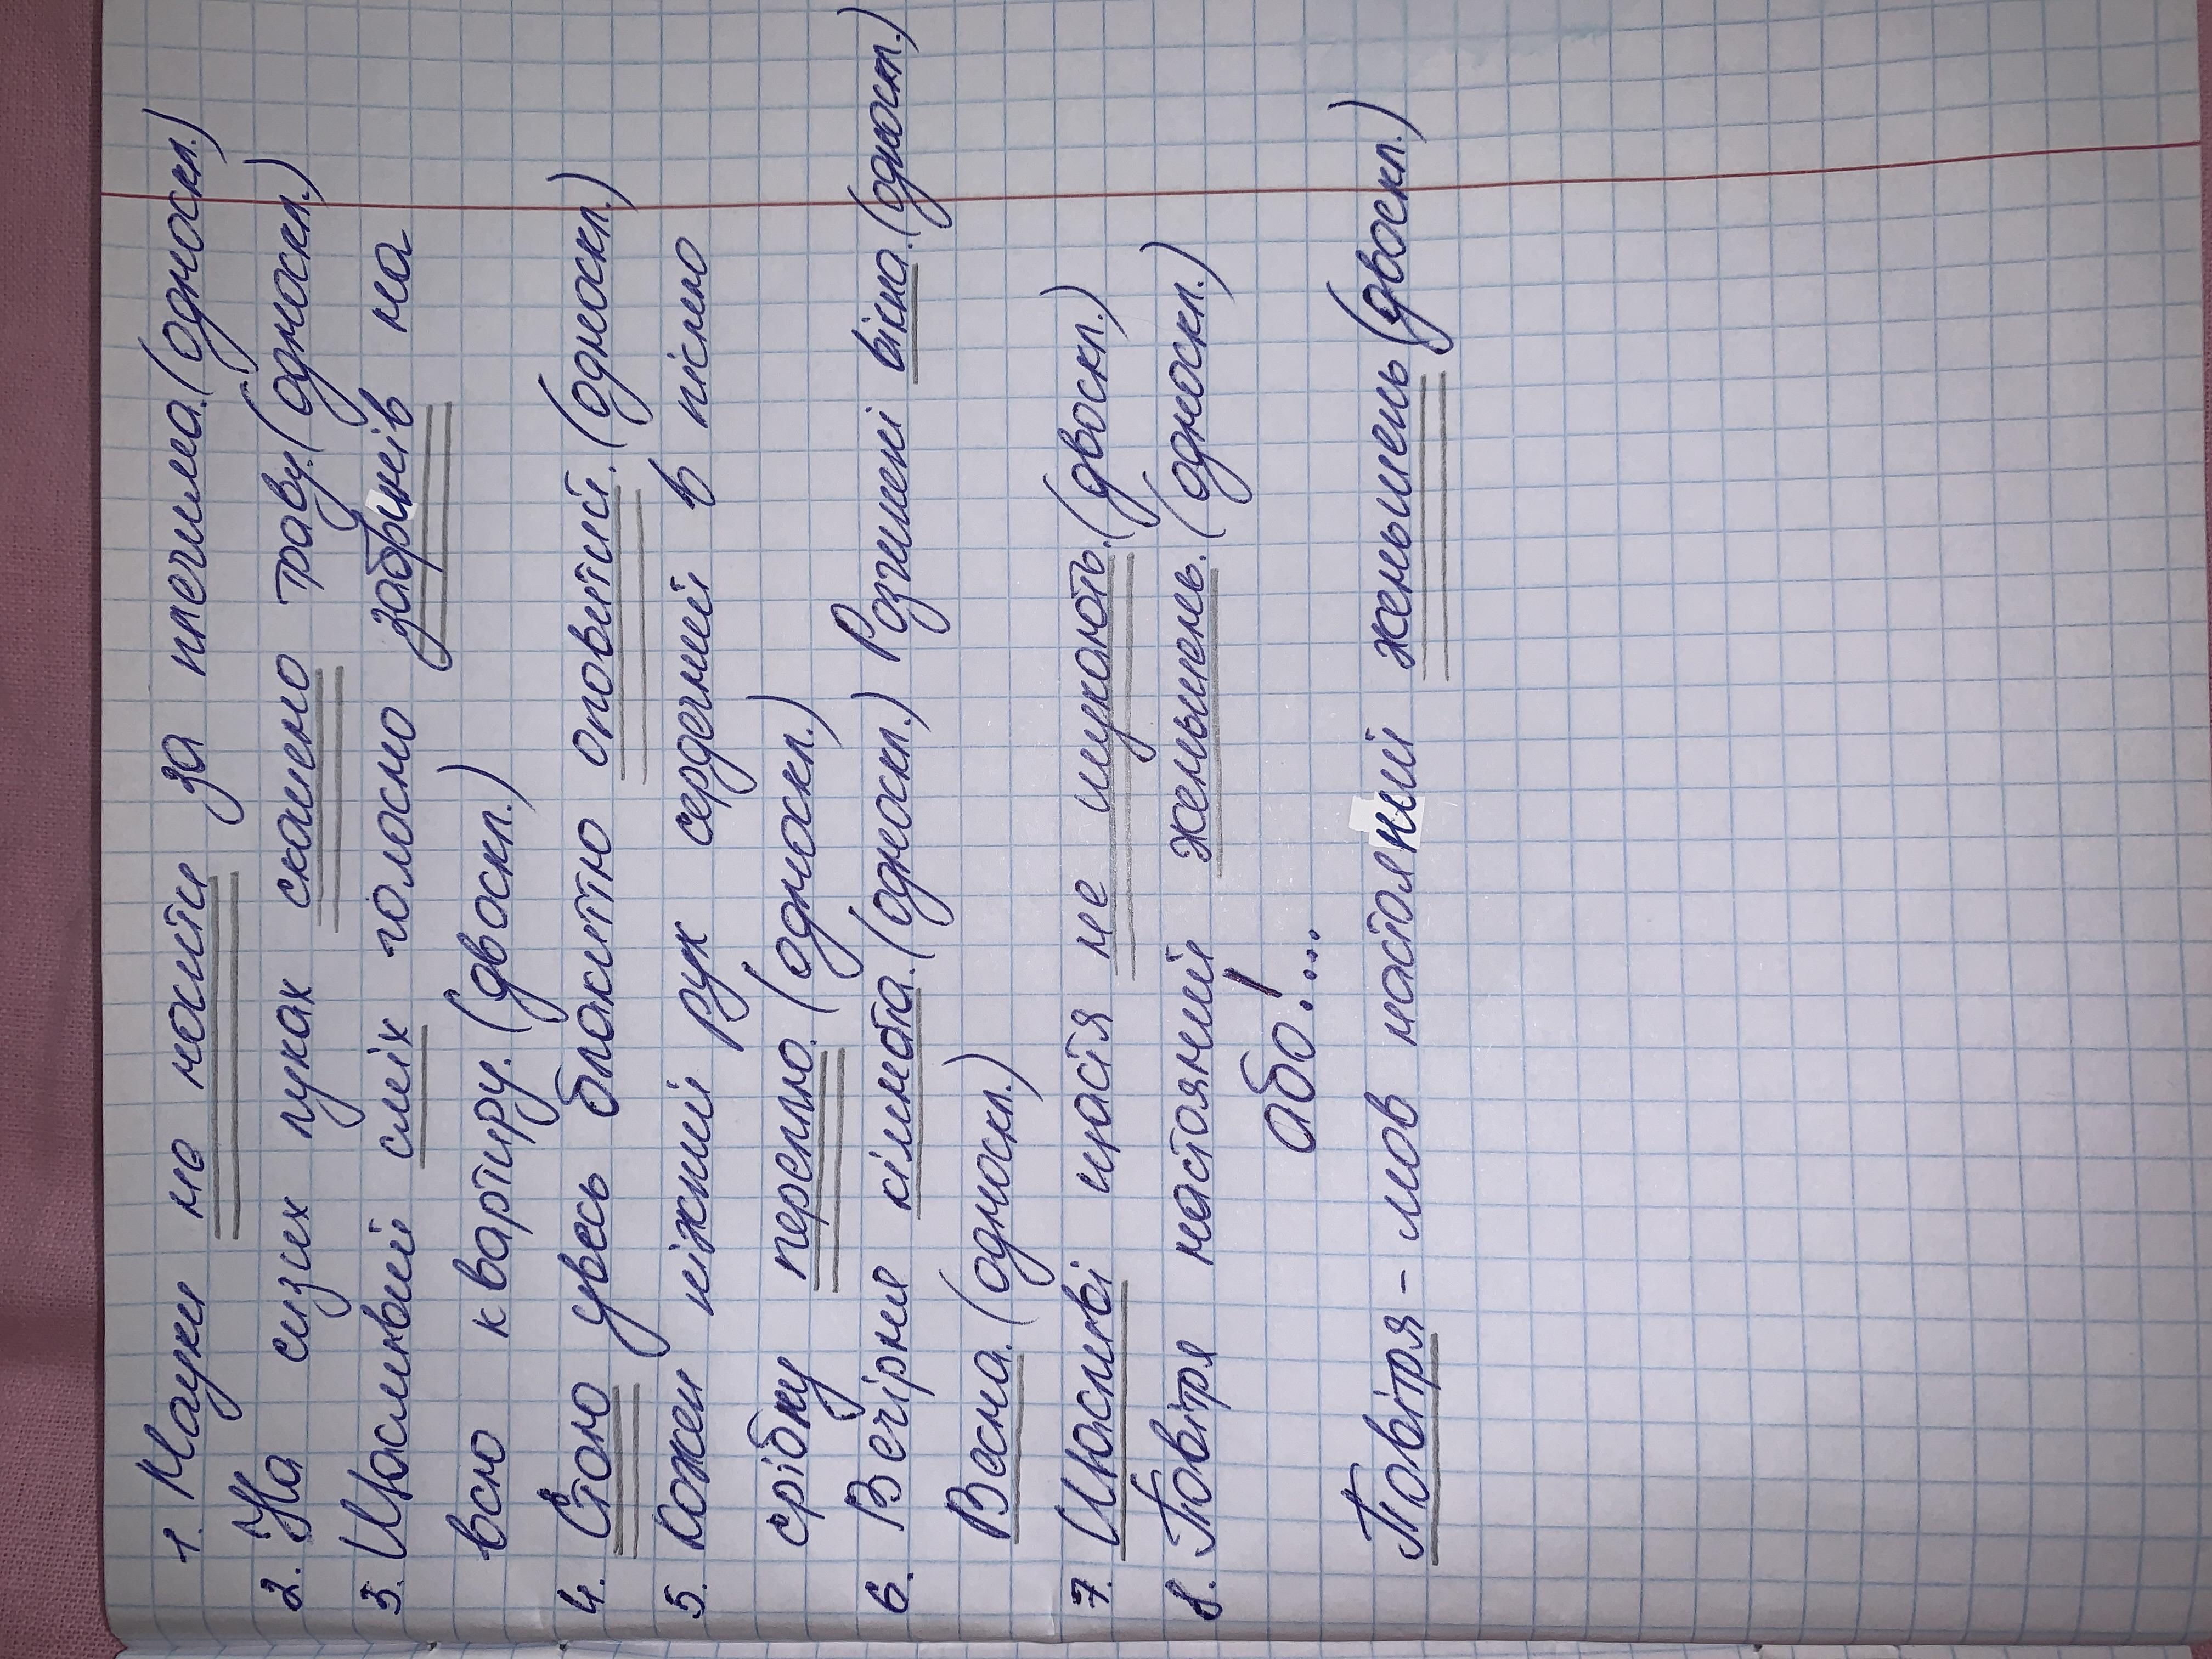 1. Науки не носити за плечима. (односкл.)
2. На сизих луках скошено траву. (односкл.)
3. Щасливий сміх голосно забринів на
всю квартиру. (двоскл.)
4. Стою увесь блакиттю оповитий. (односкл.)
5. Кожен ніжний рук сердечний в пісню
срібну переллю. (односкл.)
6. Вечірня кімната. (односкл.) Розчинені вікна. (односкл.)
Весна. (односкл.)
7. Щасливі щастя не шукають. (двоскл.)
8. Повітря настояний женьшень. (односкл.)
або!...
Повітря - мов настояний женьшень (двоскл.)